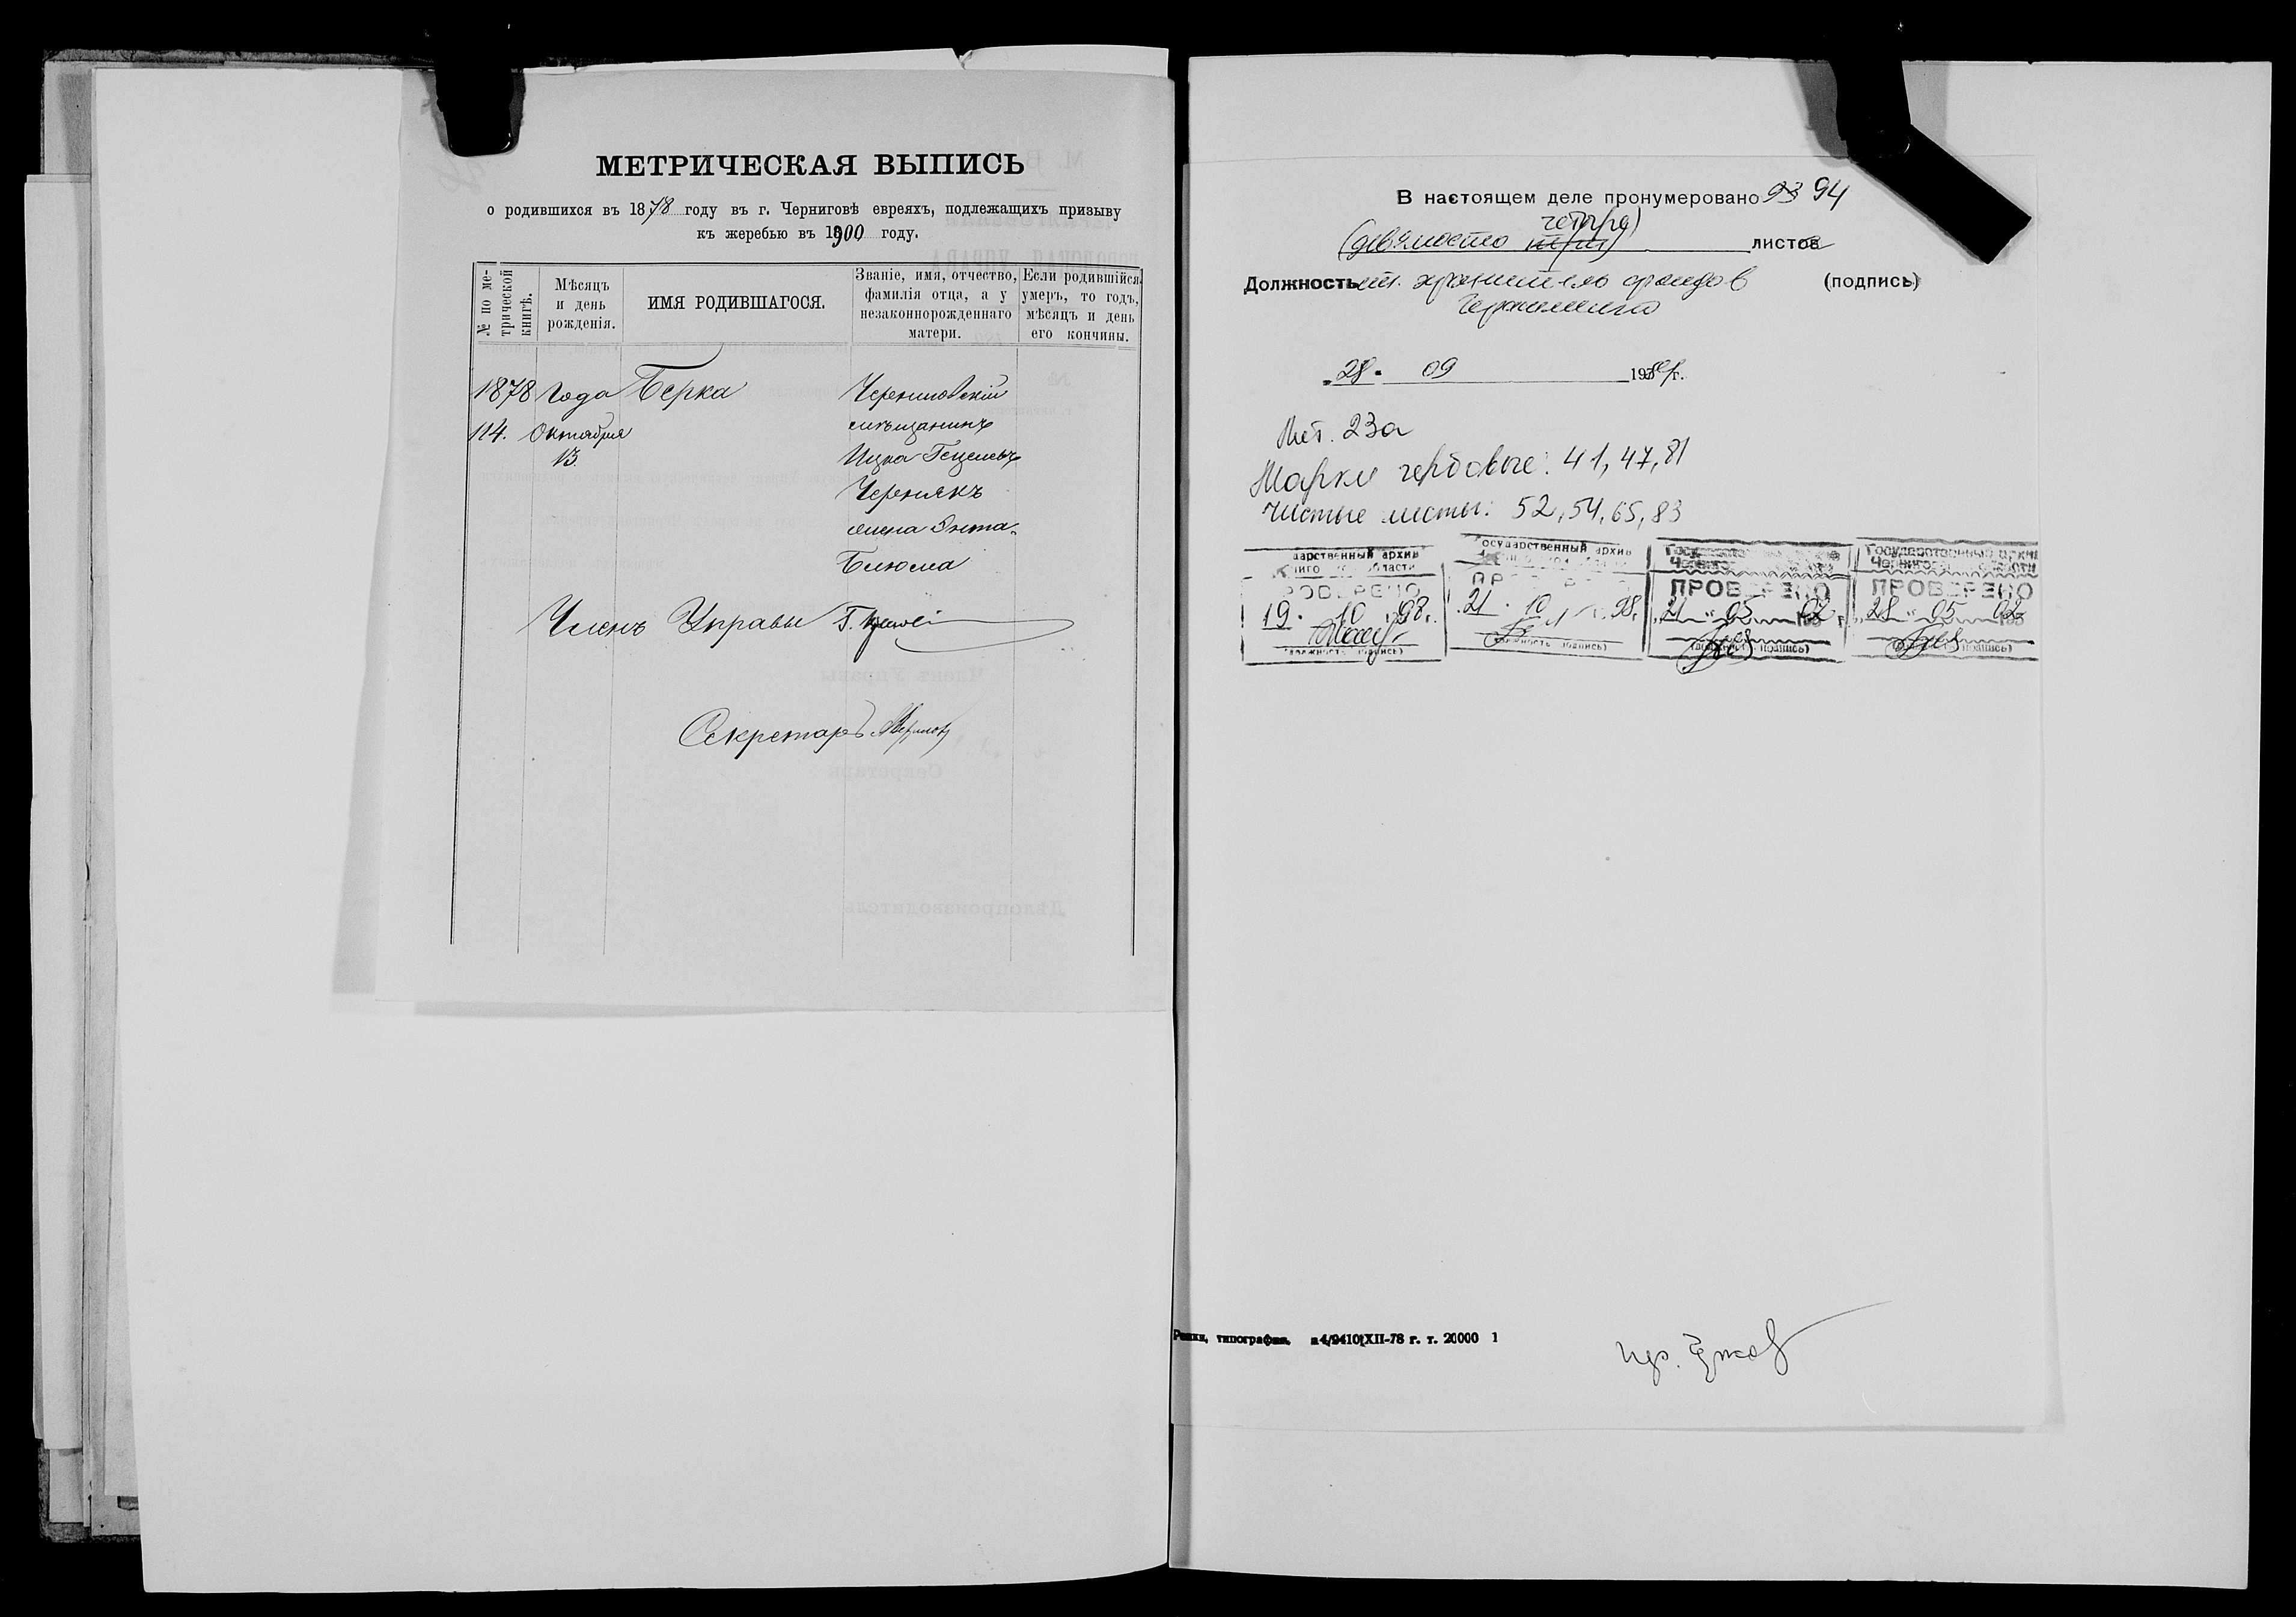 МЕТРИЧЕСКАЯ ВЫПИСЬ
о родившихся въ 1878 году въ г. Черниговѣ евреяхъ, подлежащихъ призыву
къ жеребью въ 1900 году.
№ по метрической книгѣ.
Мѣсяцъ и день рожденія.
ИМЯ РОДИВШАГОСЯ.
Званіе, имя, отчество, фамилія отца, а у незаконнорожденнаго матери.
Если родившійся умеръ, то годъ, мѣсяцъ и день его кончины.
1878 Года Берка Черниговскій
114. Октября мѣщанинъ
13. Ицка Гецелевъ
Чернякъ
жена Энта-
Блюма
Членъ Управы
Секретарь
Членъ Управы
Секретарь
Дѣлопроизводитель
В настоящем деле пронумеровано 93 94
(девяносто три) четыре) листов
Должность ст. хранитель фондов (подпись)
„28" 09 198 г.
Лит. 23а
Марки гербовые: 41, 47, 81
Чистые листы: 52, 54, 65, 83
дарственный архив
области
РОВЕРЕНО
19. 10 98г.
(должность подпись)
осударственный архив
21. 10 98г.
должность подпись)
Государственный
ПРОВЕРЕНО
„21" 05 02 г.
(должность подпись)
Государственный архив
Черниговской области
ПРОВЕРЕНО
„28" 05 02
подпись)
типография. 4/9410 XII-78 г. т. 20000 1